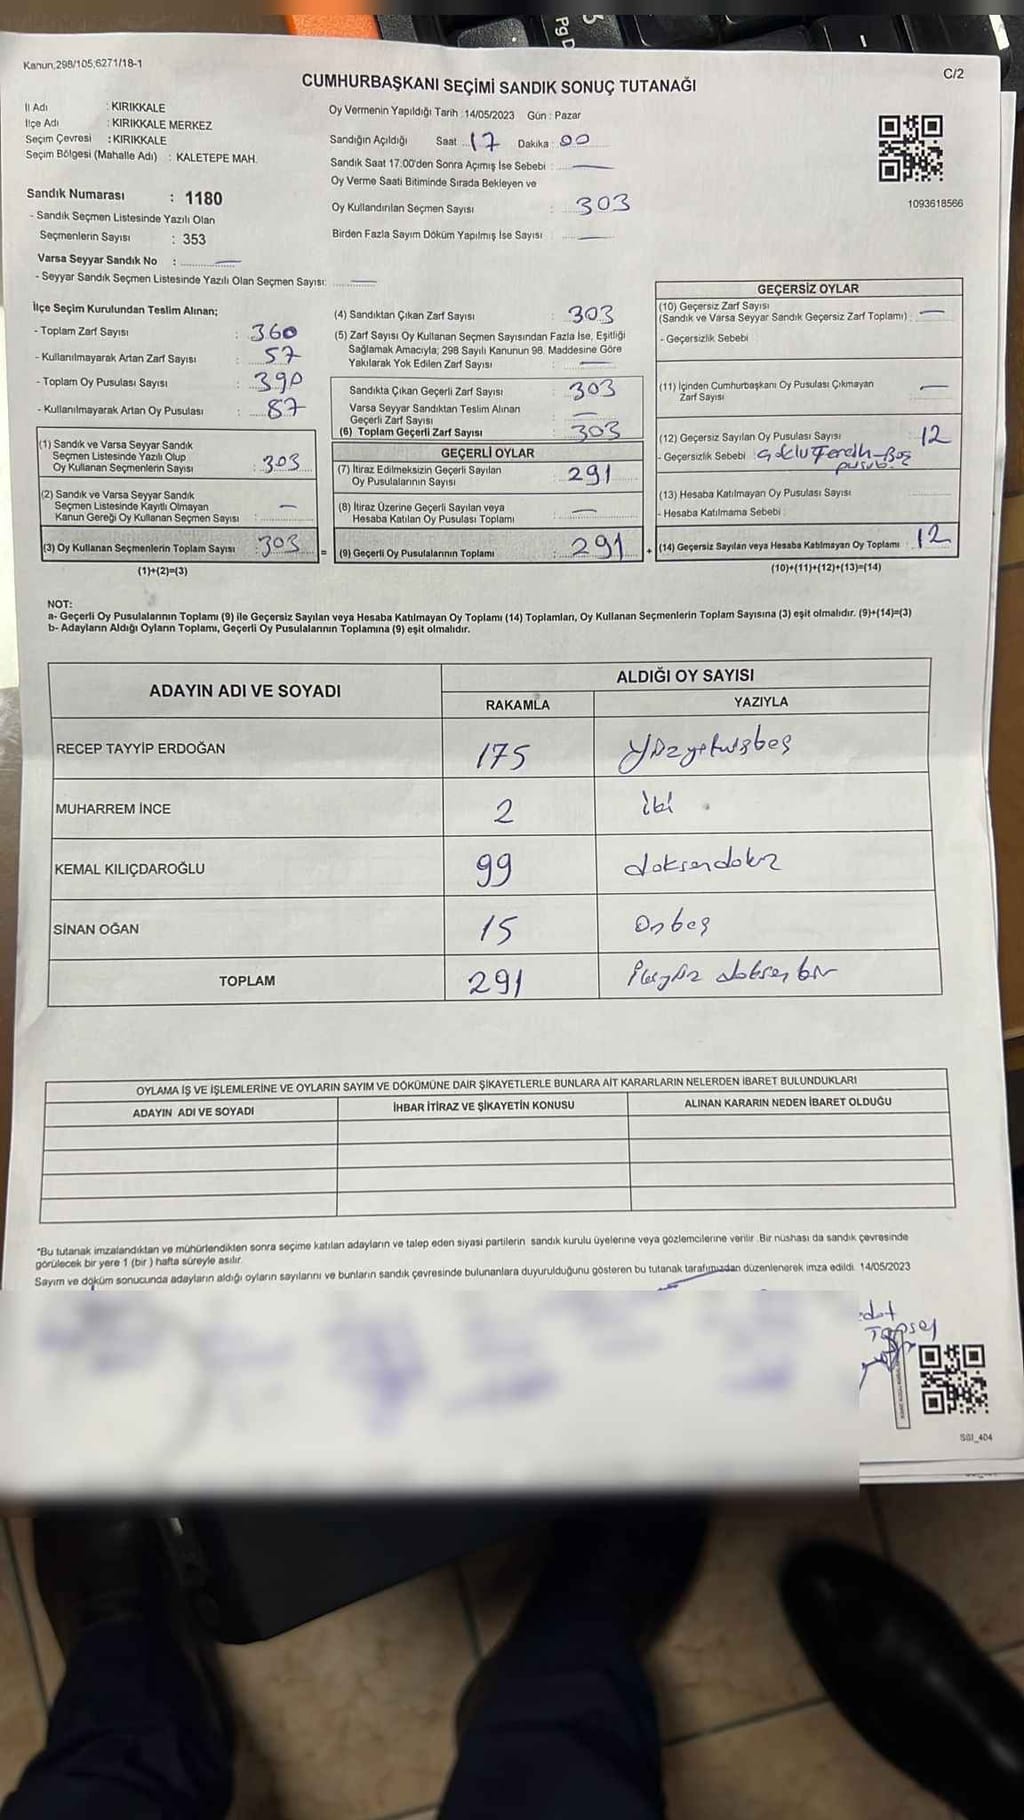 Kanun,298/105,6271/18-1
C/2
CUMHURBAŞKANI SEÇİMİ SANDIK SONUÇ TUTANAĞI
İl Adı : KIRIKKALE
İlçe Adı : KIRIKKALE MERKEZ
Seçim Çevresi : KIRIKKALE
Seçim Bölgesi (Mahalle Adı) : KALETEPE MAH.
Sandık Numarası : 1180
- Sandık Seçmen Listesinde Yazılı Olan
Seçmenlerin Sayısı : 353
Varsa Seyyar Sandık No :
- Seyyar Sandık Seçmen Listesinde Yazılı Olan Seçmen Sayısı:
Oy Vermenin Yapıldığı Tarih : 14/05/2023 Gün : Pazar
Sandığın Açıldığı Saat 17 Dakika : 00
Sandık Saat 17:00'den Sonra Açımış İse Sebebi :
Oy Verme Saati Bitiminde Sırada Bekleyen ve
Oy Kullandırılan Seçmen Sayısı : 303
Birden Fazla Sayım Döküm Yapılmış İse Sayısı :
1093618566
İlçe Seçim Kurulundan Teslim Alınan;
- Toplam Zarf Sayısı : 360
- Kullanılmayarak Artan Zarf Sayısı : 57
- Toplam Oy Pusulası Sayısı : 390
- Kullanılmayarak Artan Oy Pusulası : 87
(1) Sandık ve Varsa Seyyar Sandık
Seçmen Listesinde Yazılı Olup
Oy Kullanan Seçmenlerin Sayısı : 303
(2) Sandık ve Varsa Seyyar Sandık
Seçmen Listesinde Kayıtlı Olmayan
Kanun Gereği Oy Kullanan Seçmen Sayısı : —
(3) Oy Kullanan Seçmenlerin Toplam Sayısı : 303 =
(1)+(2)=(3)
(4) Sandıktan Çıkan Zarf Sayısı : 303
(5) Zarf Sayısı Oy Kullanan Seçmen Sayısından Fazla İse, Eşitliği
Sağlamak Amacıyla; 298 Sayılı Kanunun 98. Maddesine Göre
Yakılarak Yok Edilen Zarf Sayısı : —
Sandıkta Çıkan Geçerli Zarf Sayısı : 303
Varsa Seyyar Sandıktan Teslim Alınan
Geçerli Zarf Sayısı : —
(6) Toplam Geçerli Zarf Sayısı : 303
GEÇERLİ OYLAR
(7) İtiraz Edilmeksizin Geçerli Sayılan
Oy Pusulasının Sayısı : 291
(8) İtiraz Üzerine Geçerli Sayılan veya
Hesaba Katılan Oy Pusulası Toplamı : —
(9) Geçerli Oy Pusulalarının Toplamı : 291 +
GEÇERSİZ OYLAR
(10) Geçersiz Zarf Sayısı
(Sandık ve Varsa Seyyar Sandık Geçersiz Zarf Toplamı) : —
- Geçersizlik Sebebi :
(11) İçinden Cumhurbaşkanı Oy Pusulası Çıkmayan
Zarf Sayısı : —
(12) Geçersiz Sayılan Oy Pusulası Sayısı : 12
- Geçersizlik Sebebi : Çoklu Tercih-Boş
pusula
(13) Hesaba Katılmayan Oy Pusulası Sayısı :
- Hesaba Katılmama Sebebi :
(14) Geçersiz Sayılan veya Hesaba Katılmayan Oy Toplamı : 12
(10)+(11)+(12)+(13)=(14)
NOT:
a- Geçerli Oy Pusulalarının Toplamı (9) ile Geçersiz Sayılan veya Hesaba Katılmayan Oy Toplamı (14) Toplamları, Oy Kullanan Seçmenlerin Toplam Sayısına (3) eşit olmalıdır. (9)+(14)=(3)
b- Adayların Aldığı Oyların Toplamı, Geçerli Oy Pusulalarının Toplamına (9) eşit olmalıdır.
ADAYIN ADI VE SOYADI ALDIĞI OY SAYISI
RAKAMLA YAZIYLA
RECEP TAYYİP ERDOĞAN 175 yüzyetmişbeş
MUHARREM İNCE 2 iki
KEMAL KILIÇDAROĞLU 99 doksandokuz
SİNAN OĞAN 15 Onbeş
TOPLAM 291 ikiyüz doksan bir
OYLAMA İŞ VE İŞLEMLERİNE VE OYLARIN SAYIM VE DÖKÜMÜNE DAİR ŞİKAYETLERLE BUNLARA AİT KARARLARIN NELERDEN İBARET BULUNDUKLARI
ADAYIN ADI VE SOYADI İHBAR İTİRAZ VE ŞİKAYETİN KONUSU ALINAN KARARIN NEDEN İBARET OLDUĞU
*Bu tutanak imzalandıktan ve mühürlendikten sonra seçime katılan adayların ve talep eden siyasi partilerin sandık kurulu üyelerine veya gözlemcilerine verilir. Bir nüshası da sandık çevresinde
görülecek bir yere 1 (bir) hafta süreyle asılır.
Sayım ve döküm sonucunda adayların aldığı oyların sayılarını ve bunların sandık çevresinde bulunanlara duyurulduğunu gösteren bu tutanak tarafımızdan düzenlenerek imza edildi. 14/05/2023
SGI_404